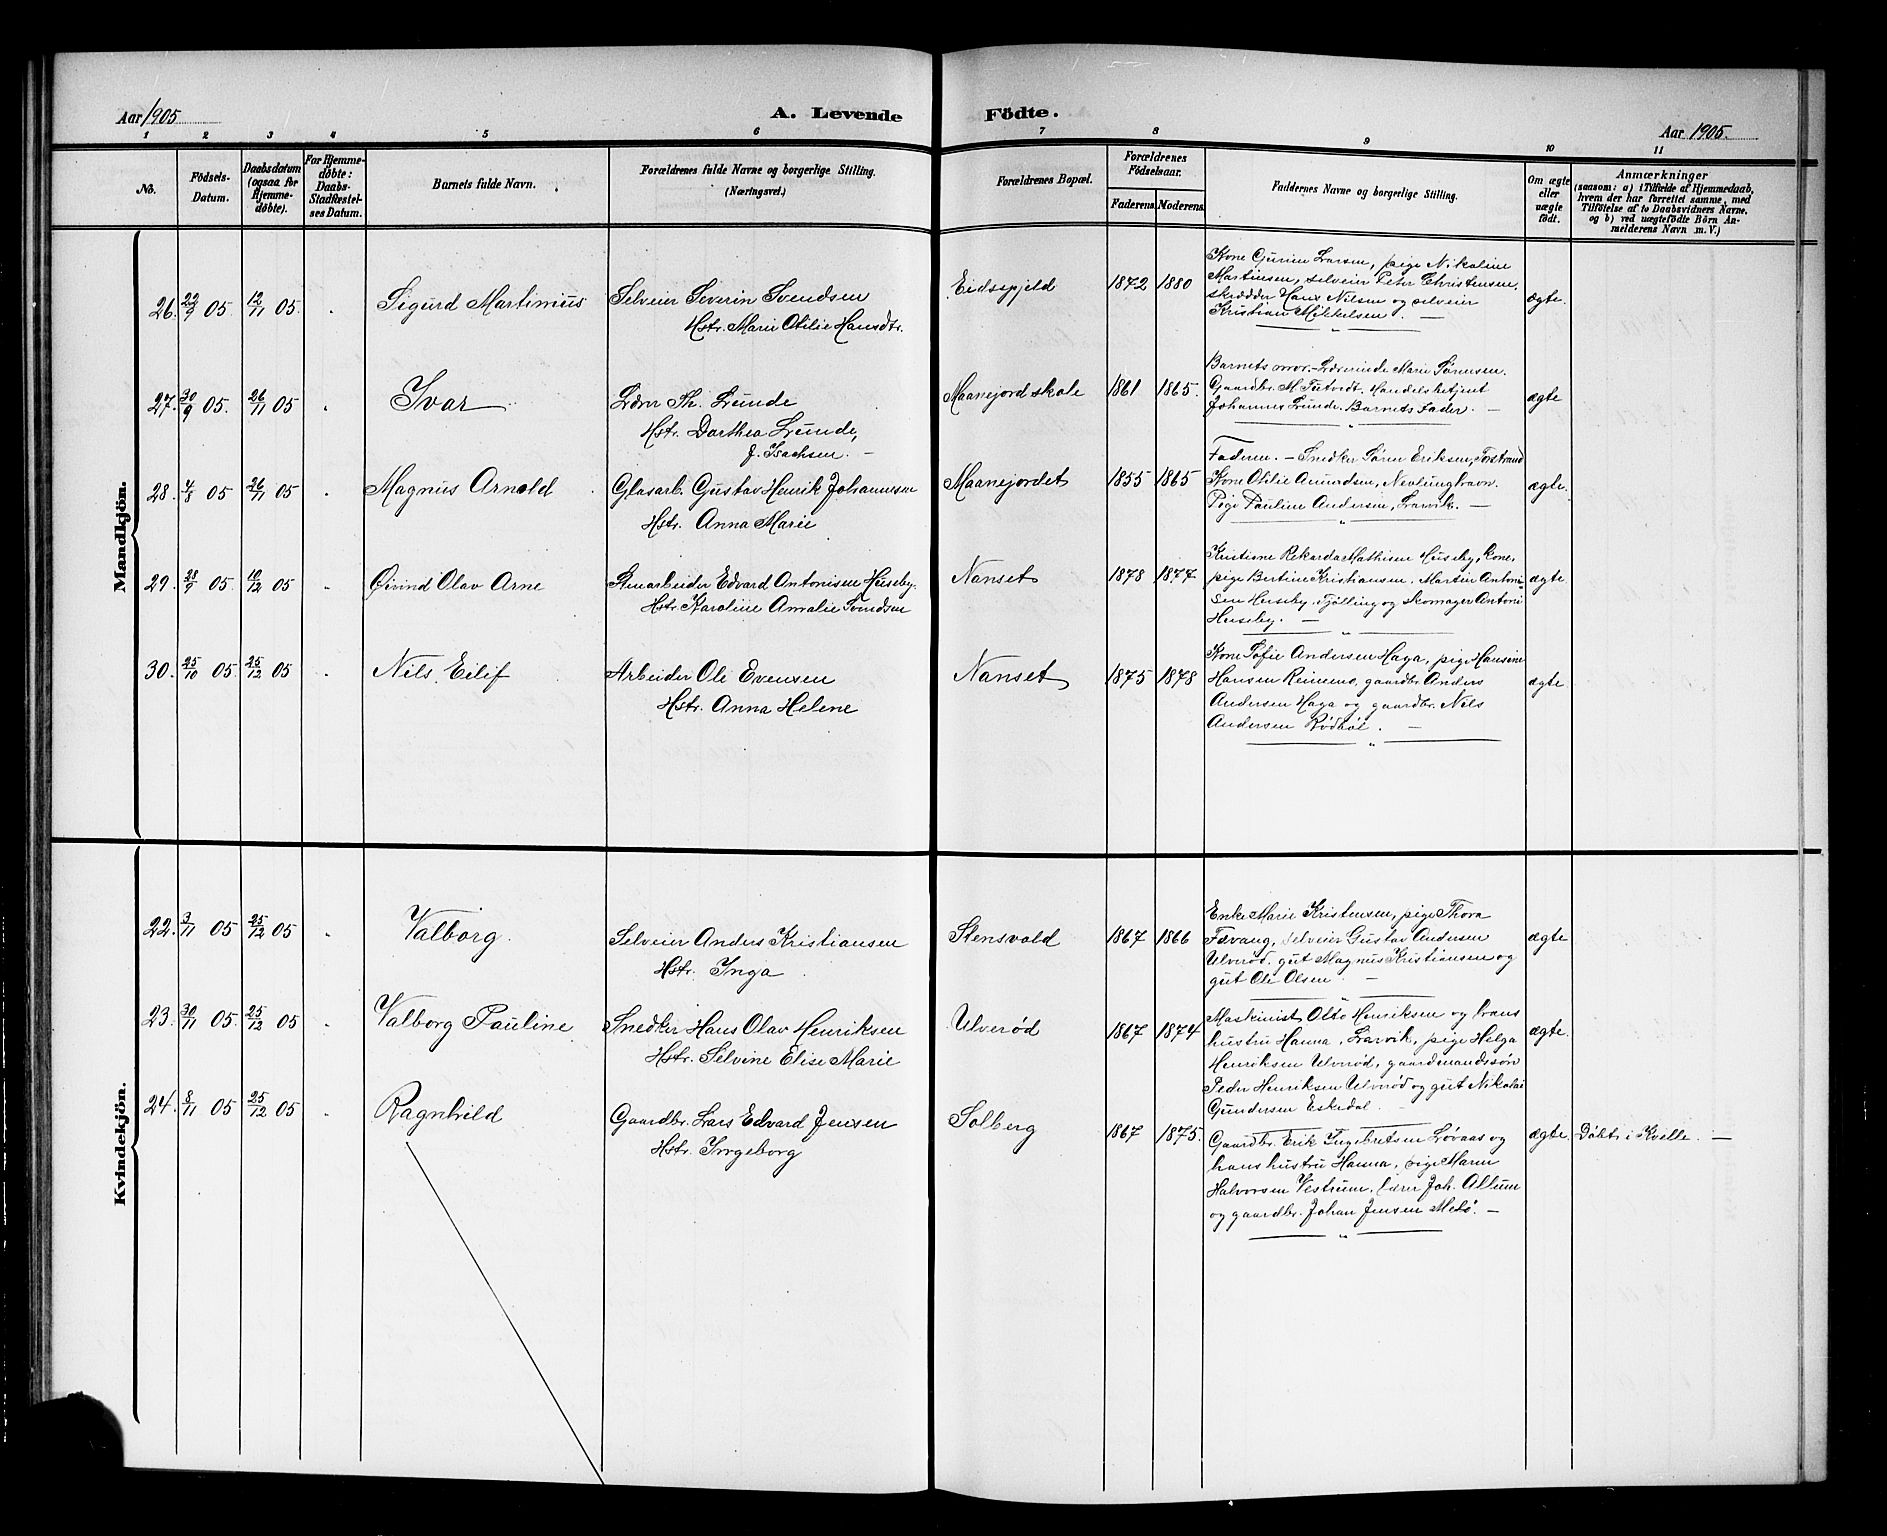 Aar 1905
A. Levende Födte.
Aar 1905.
1 2 3 4 5 6 7 8 9 10 11
No.
Födsels-
Datum.
Daabsdatum
(ogsaa for
Hjemme-
døbte).
For Hjemme-
døbte:
Daabs-
Stadfæstel-
ses Datum.
Barnets fulde Navn.
Forældrenes fulde Navne og borgerlige Stilling.
(Næringsvei.)
Forældrenes Bopæl.
Forældrenes
Födselsaar.
Faderens. Moderens.
Faddernes Navne og borgerlige Stilling.
Om ægte
eller
uægte
födt.
Anmærkninger
(saasom: a) i Tilfælde af Hjemmedaab,
hvem der har forrettet samme, med
Tilföielse af to Daabsvidners Navne,
og b) ved uægtefödte Börn An-
melderens Navn m. V.)
Mandkjön.
26. 22/9 05. 12/11 05. Sigurd Martinius
Selveier Severin Svendsen
Hstr. Marie Otilie Hansdtr.
Eidsspjeld 1872 1880
Kone Gurine Larsen, pige Nikoline
Martinsen, selveier Peter Christensen,
skrædder Hans Nilsen og selveier
Kristian Mikkelsen. —
ægte.
27. 30/9 05. 26/11 05 Ivar
Lærer Th. Lunde
Hstr. Dorthea Lunde,
f. Isachsen. —
Maanejordskole 1861 1865.
Barnets mor. - Lærerinde Marie Sørensen.
Gaardbr. M. Tutvedt. Handelsbetjent
Johannes Lunde. Barnets Fader. —
ægte
28. 4/8 05 26/11 05 Magnus Arnold
Glasarb. Gustav Henrik Johannesen
Hstr. Anna Marie
Maanejordet 1855 1865
Faderen. — Snedker Sören Eriksen, Torstrand
Kone Otilie Amundsen, Nevlunghavn.
Pige Pauline Andersen, Larvik. —
ægte.
29. 28/9 05 10/12 05 Øivind Olav Arne
Stenarbeider Edvard Antonisen Heiseby.
Hstr. Karoline Amalie Svendsen
Nanset 1878 1877
Kristiane Mathisen kone,
pige Bertine Kristiansen. Martin Antoni
sen Tjölling og skomager Antoni
ægte
30. 25/10 05. 25/12 05 Nils Eilif
Arbeider Ole Evensen
Hstr. Anna Helene
Nanset 1875 1878
Kone Sofie Andersen Haga, pige Hansine
Hansen gaardbr. Anders
Andersen Haga og gaardbr. Nils
Andersen Rödböl. —
ægte
Kvindekjön.
22. 3/11 05 25/12 05 Valborg.
Selveier Anders Kristiansen
Hstr. Inga
Stensvold 1867 1866
Enke Marie Kristensen, pige Thora
Fævang, selveier Gustav Andersen
Ulverød, gut Magnus Kristiansen og
gut Ole Olsen. —
ægte
23. 30/11 05. 25/12 05 Valborg Pauline
Snedker Hans Olav Henriksen
Hstr. Selvine Elise Marie
Ulverød 1867 1874
Maskinist Otto Henriksen og hans
hustru Hanna, Larvik, pige Helga
Henriksen Ulverød, gaardmandssøn
Peder Henriksen Ulverød og gut Nikolai
Gundersen Eskedal. —
ægte.
24. 8/11 05 25/12 05 Ragnhild
Gaardbr. Lars Edvard Jensen
Hstr. Ingeborg
Solberg 1867 1875.
Gaardbr. Erik Ingebretsen Løvaas og
hans hustru Hanna, pige Maren
Halvorsen Vestrum, lærer Joh. Allum
og gaardbr. Johan Jensen Melö. —
ægte. Döbt i Kvelle. —